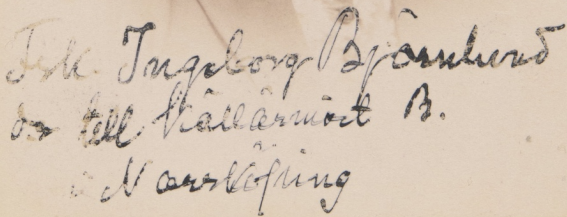 Frk. Ingeborg Björnlund
till källarmäst B.
i Norrköping